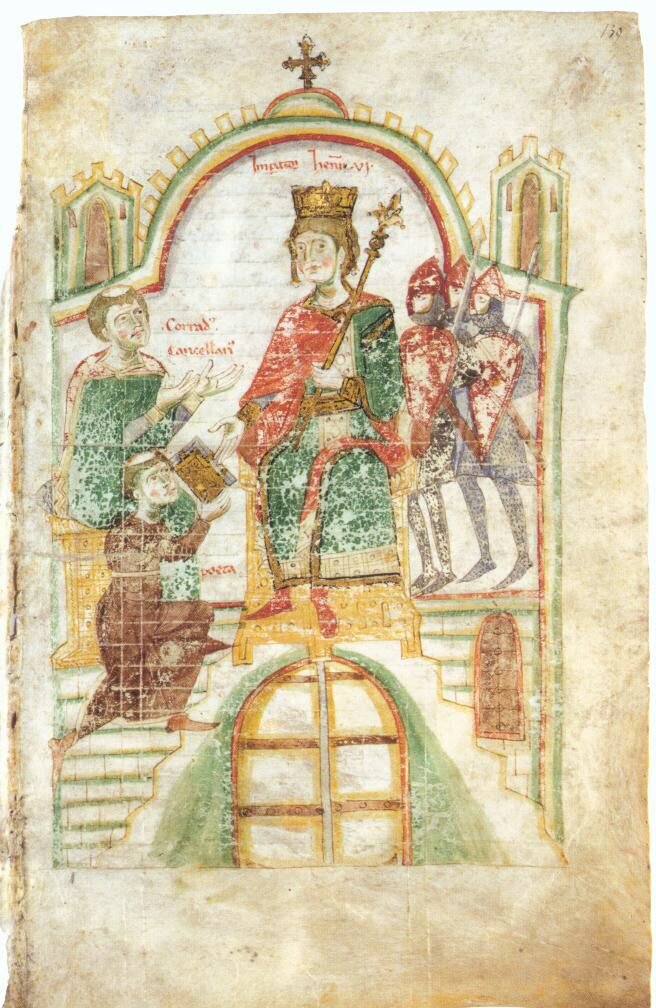 139
Imp̄ator henric̄ .vi.
.Corrad'.
Cancellari'
poeta